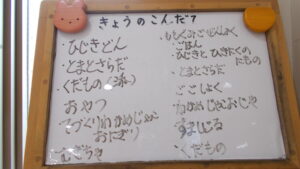 きょうのこんだて
・ひじきどん
・とまとさらだ
・くだもの
おやつ
てづくりわかめじゃこ
おにぎり
むぎちゃ
・ごはん
・ひじきと ひきにくの
にもの
・とまとさらだ
わかめじゃこおじや
すましじる
・くだもの